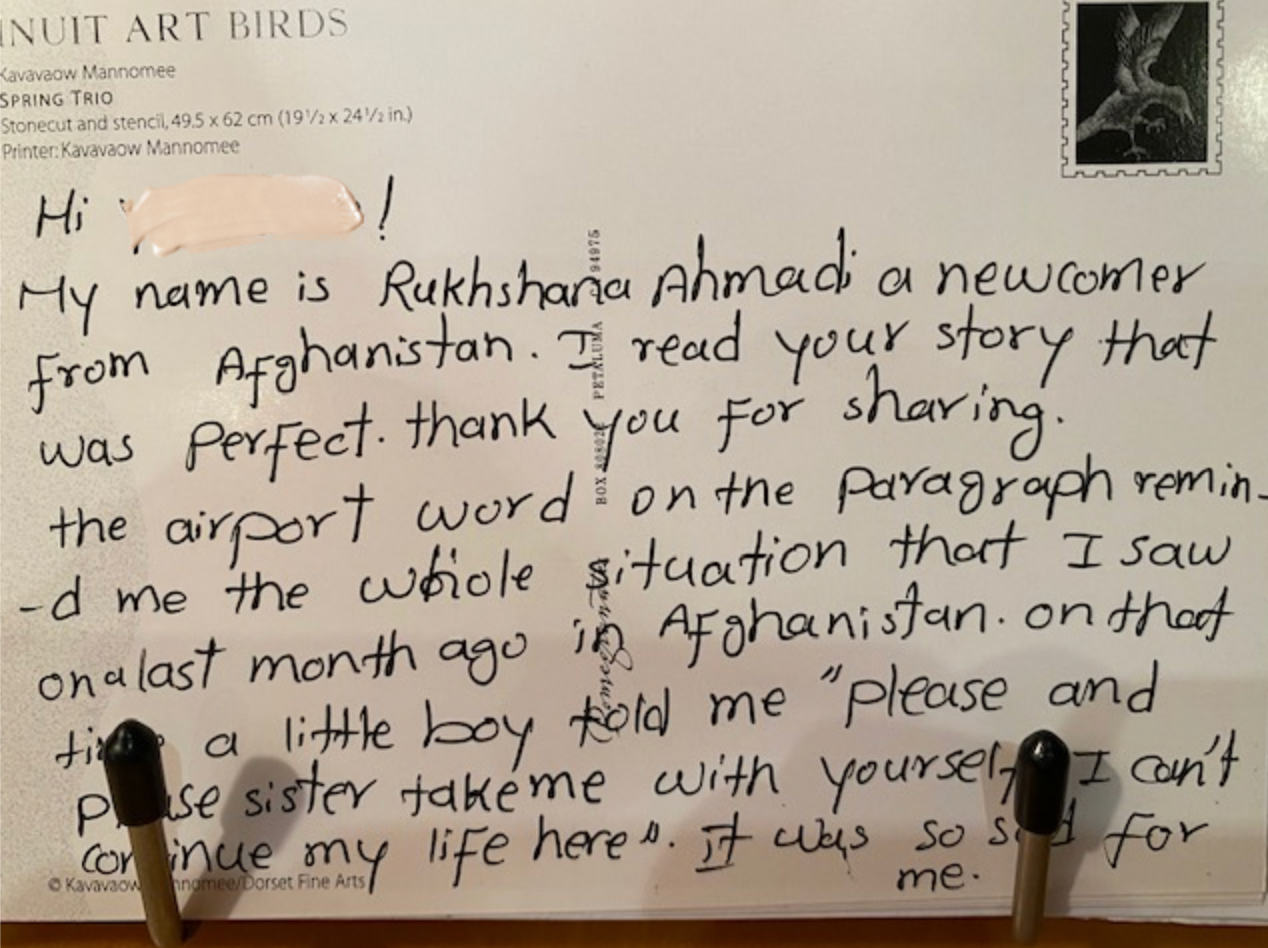 INUIT ART BIRDS
Kavavaow Mannomee
SPRING TRIO
Stonecut and stencil, 49.5 x 62 cm (19 1/2 x 24 1/2 in.)
Printer: Kavavaow Mannomee
Hi !
My name is Rukhshana Ahmadi a newcomer
from Afghanistan. I read your story that
was Perfect. thank you for sharing.
the airport word on the Paragraph remin-
-d me the whole situation that I saw
on a last month ago in Afghanistan. on that
a little boy told me "please and
sister take me with yourself I can't
continue my life here". It was so sad for
me.
© Kavavaow Mannomee/Dorset Fine Arts
PETALUMA 94975